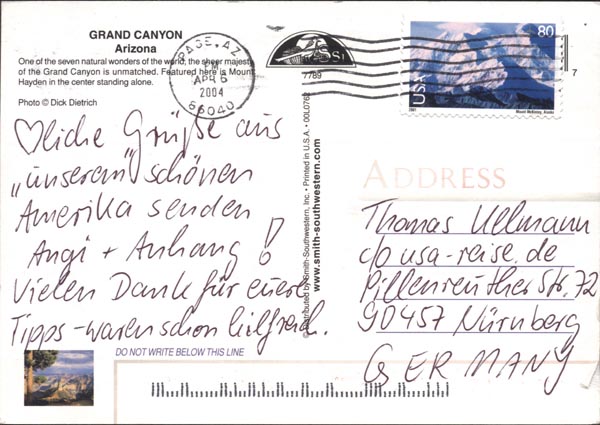 GRAND CANYON
Arizona
One of the seven natural wonders of the world, the sheer majesty
of the Grand Canyon is unmatched. Featured here is Mount
Hayden in the center standing alone.
Photo © Dick Dietrich
♡liche Grüße aus
„unserem" schönen
Amerika senden
Angi + Anhang!
Vielen Dank für eure
Tipps - waren schon hilfreich.
DO NOT WRITE BELOW THIS LINE
PAGE, AZ
PM
APR 6
2004
86040
7789
Distributed by Smith-Southwestern, Inc. • Printed in U.S.A. • 00L0763
www.smith-southwestern.com
80
USA
2001
Mount McKinley, Alaska
7
ADDRESS
Thomas Ullmann
c/o usa-reise.de
Pillenreuther Str. 72
90457 Nürnberg
GERMANY